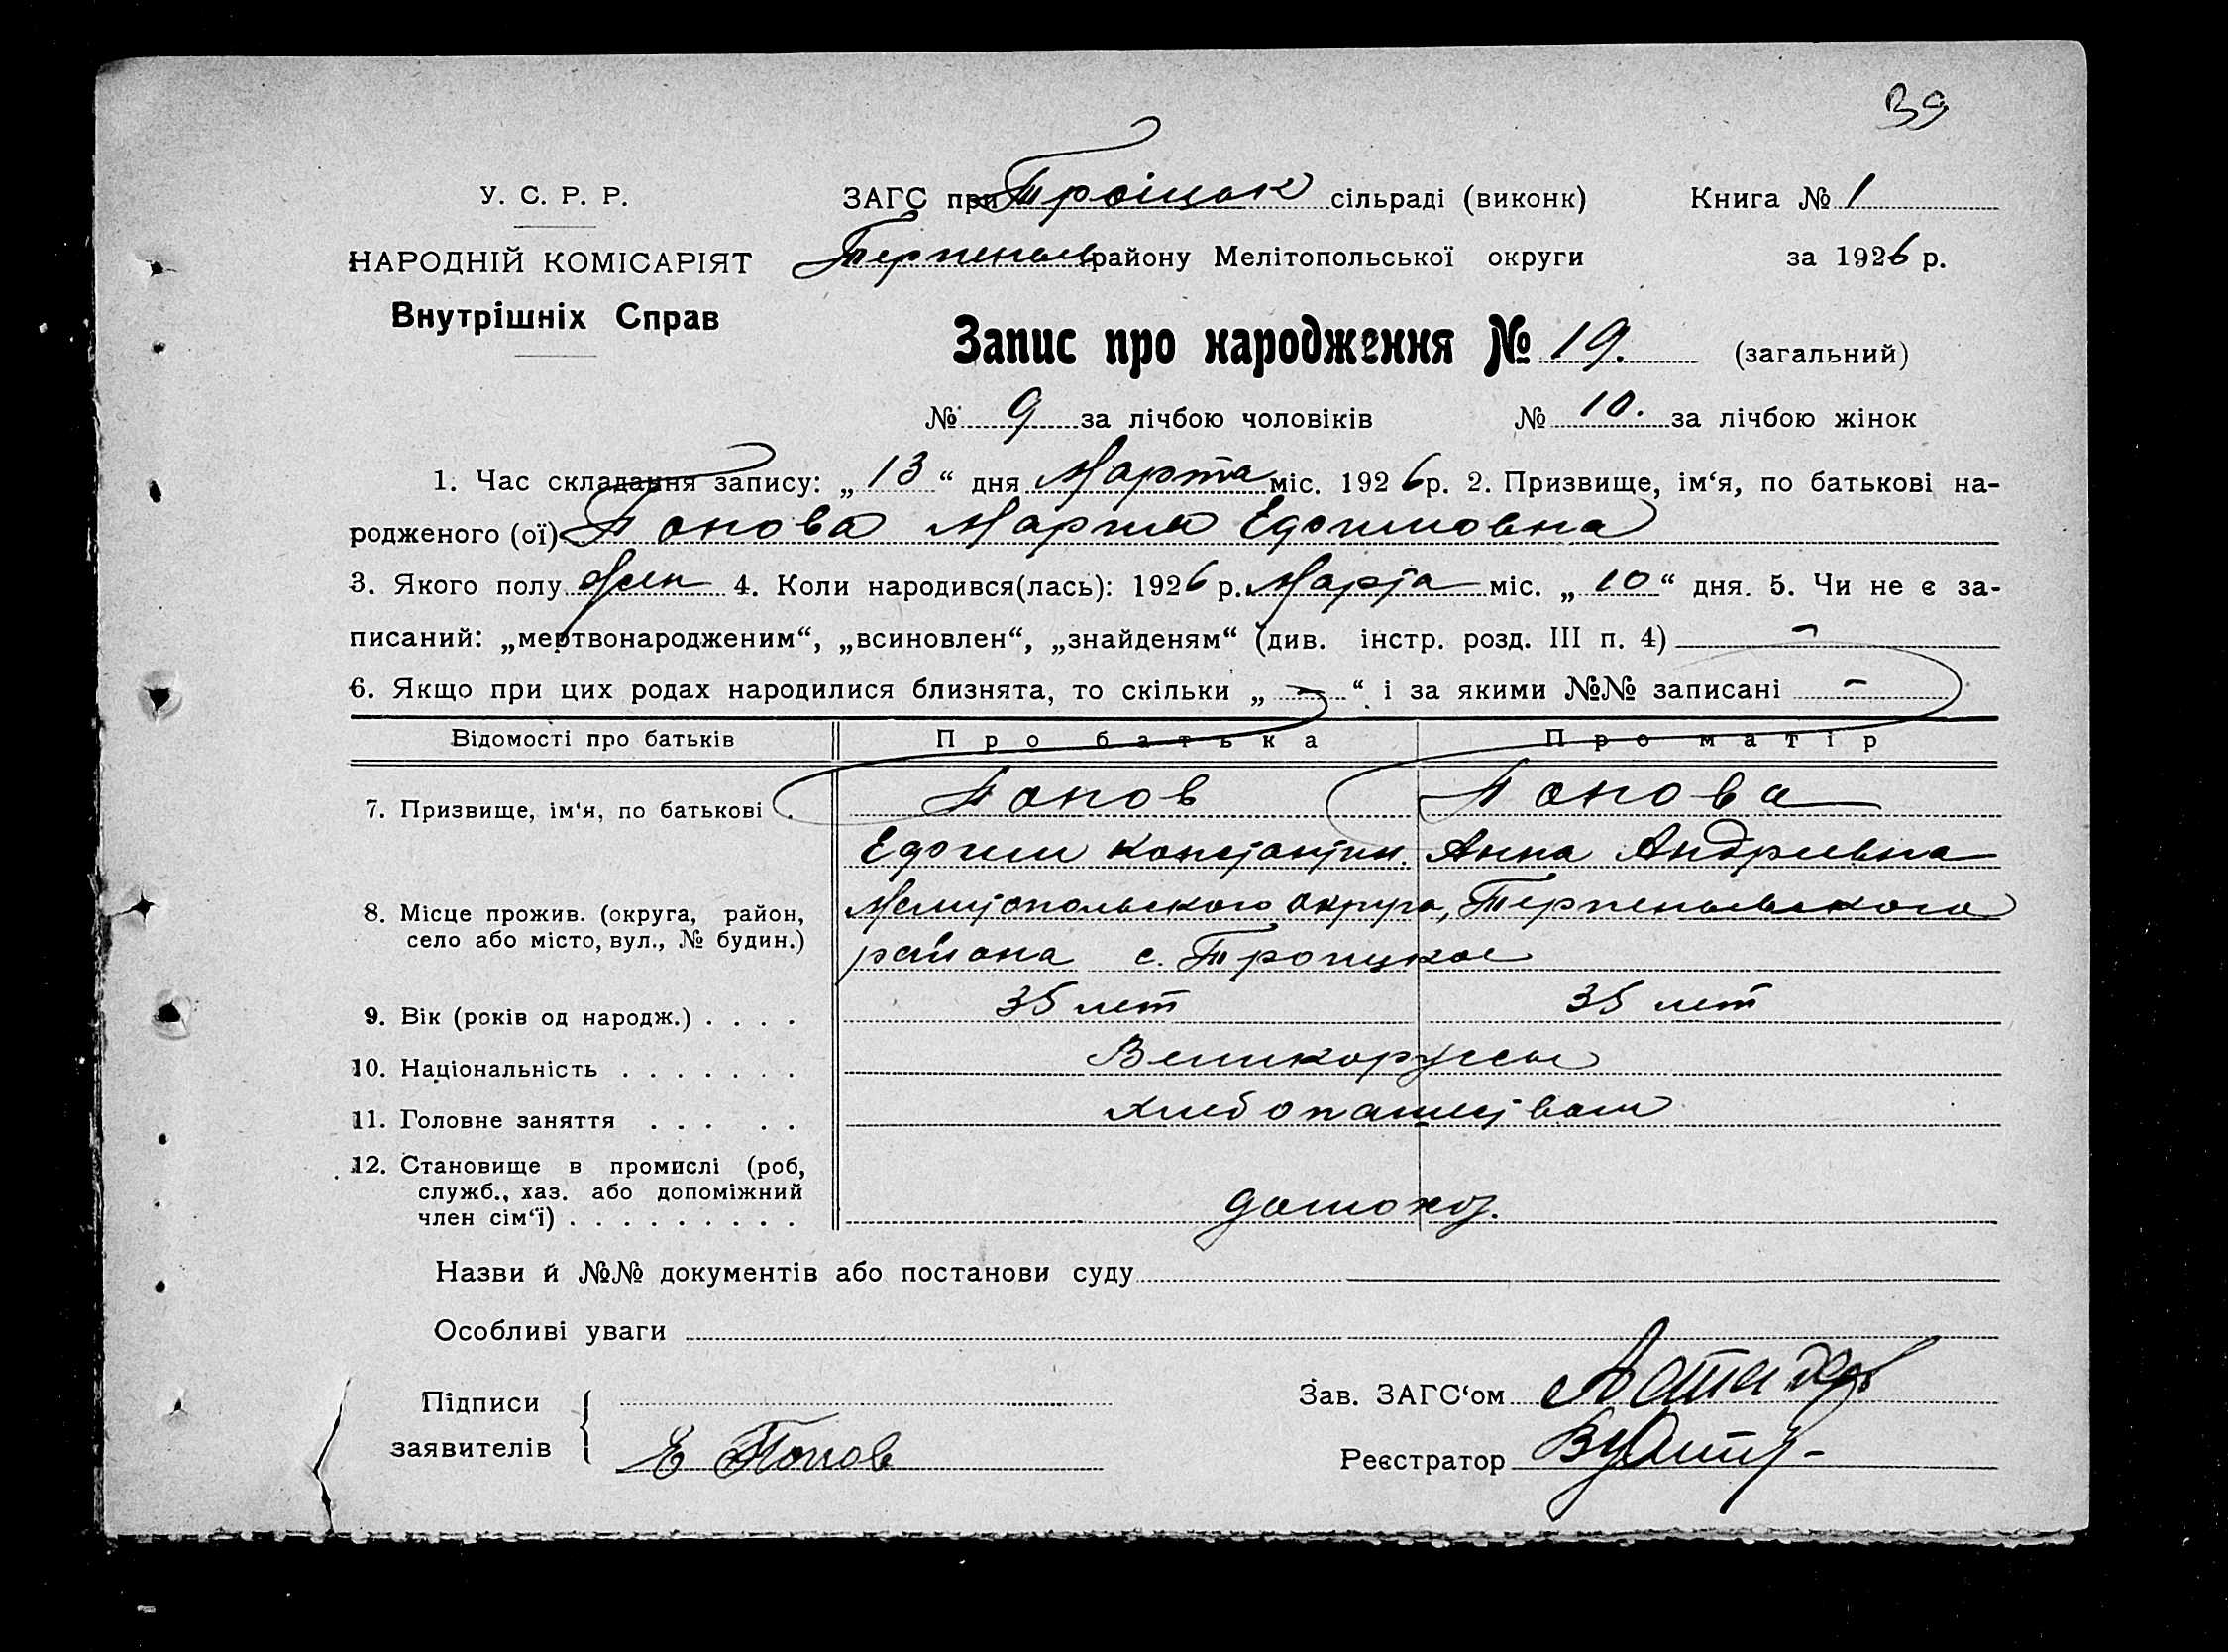 39
У. С. Р. Р.
ЗАГС при Троіцок сільраді (виконк)
Книга № 1
НАРОДНІЙ КОМІСАРІЯТ
Терпеньев району Мелітопольської округи
за 1926 р.
Внутрішніх Справ
Запис про народження № 19. (загальний)
№ 9 за лічбою чоловіків № 10. за лічбою жінок
1. Час складання запису: „ 13 “ дня Марта міс. 1926 р. 2. Призвище, ім‘я, по батькові на-
родженого (ої) Попова Мария Ефимовна
3. Якого полу жен 4. Коли народився(лась): 1926 р. Марта міс. „ 10 “ дня. 5. Чи не є за-
писаний: „мертвонародженим“, „всиновлен“, „знайденям“ (див. інстр. розд. III п. 4) —
6. Якщо при цих родах народилися близнята, то скільки „ — “ і за якими №№ записані —
Відомості про батьків Про батька Про матір
7. Призвище, ім‘я, по батькові . Попов Попова
Ефим Константин. Анна Андриевна
8. Місце прожив. (округа, район, село або місто, вул., № будин.) Мелитопольского округа, Терпеньевского
района с. Троицкое
9. Вік (років од народж.) . . . . 35 лет 35 лет
10. Національність . . . . . . . Великорусы
11. Головне заняття . . . . . хлебопашеством
12. Становище в промислі (роб, служб., хаз. або допоміжний член сім‘ї) . . . . . . . . . домохоз.
Назви й №№ документів або постанови суду
Особливі уваги
Підписи заявителів
Е Попов
Зав. ЗАГС‘ом
Реєстратор